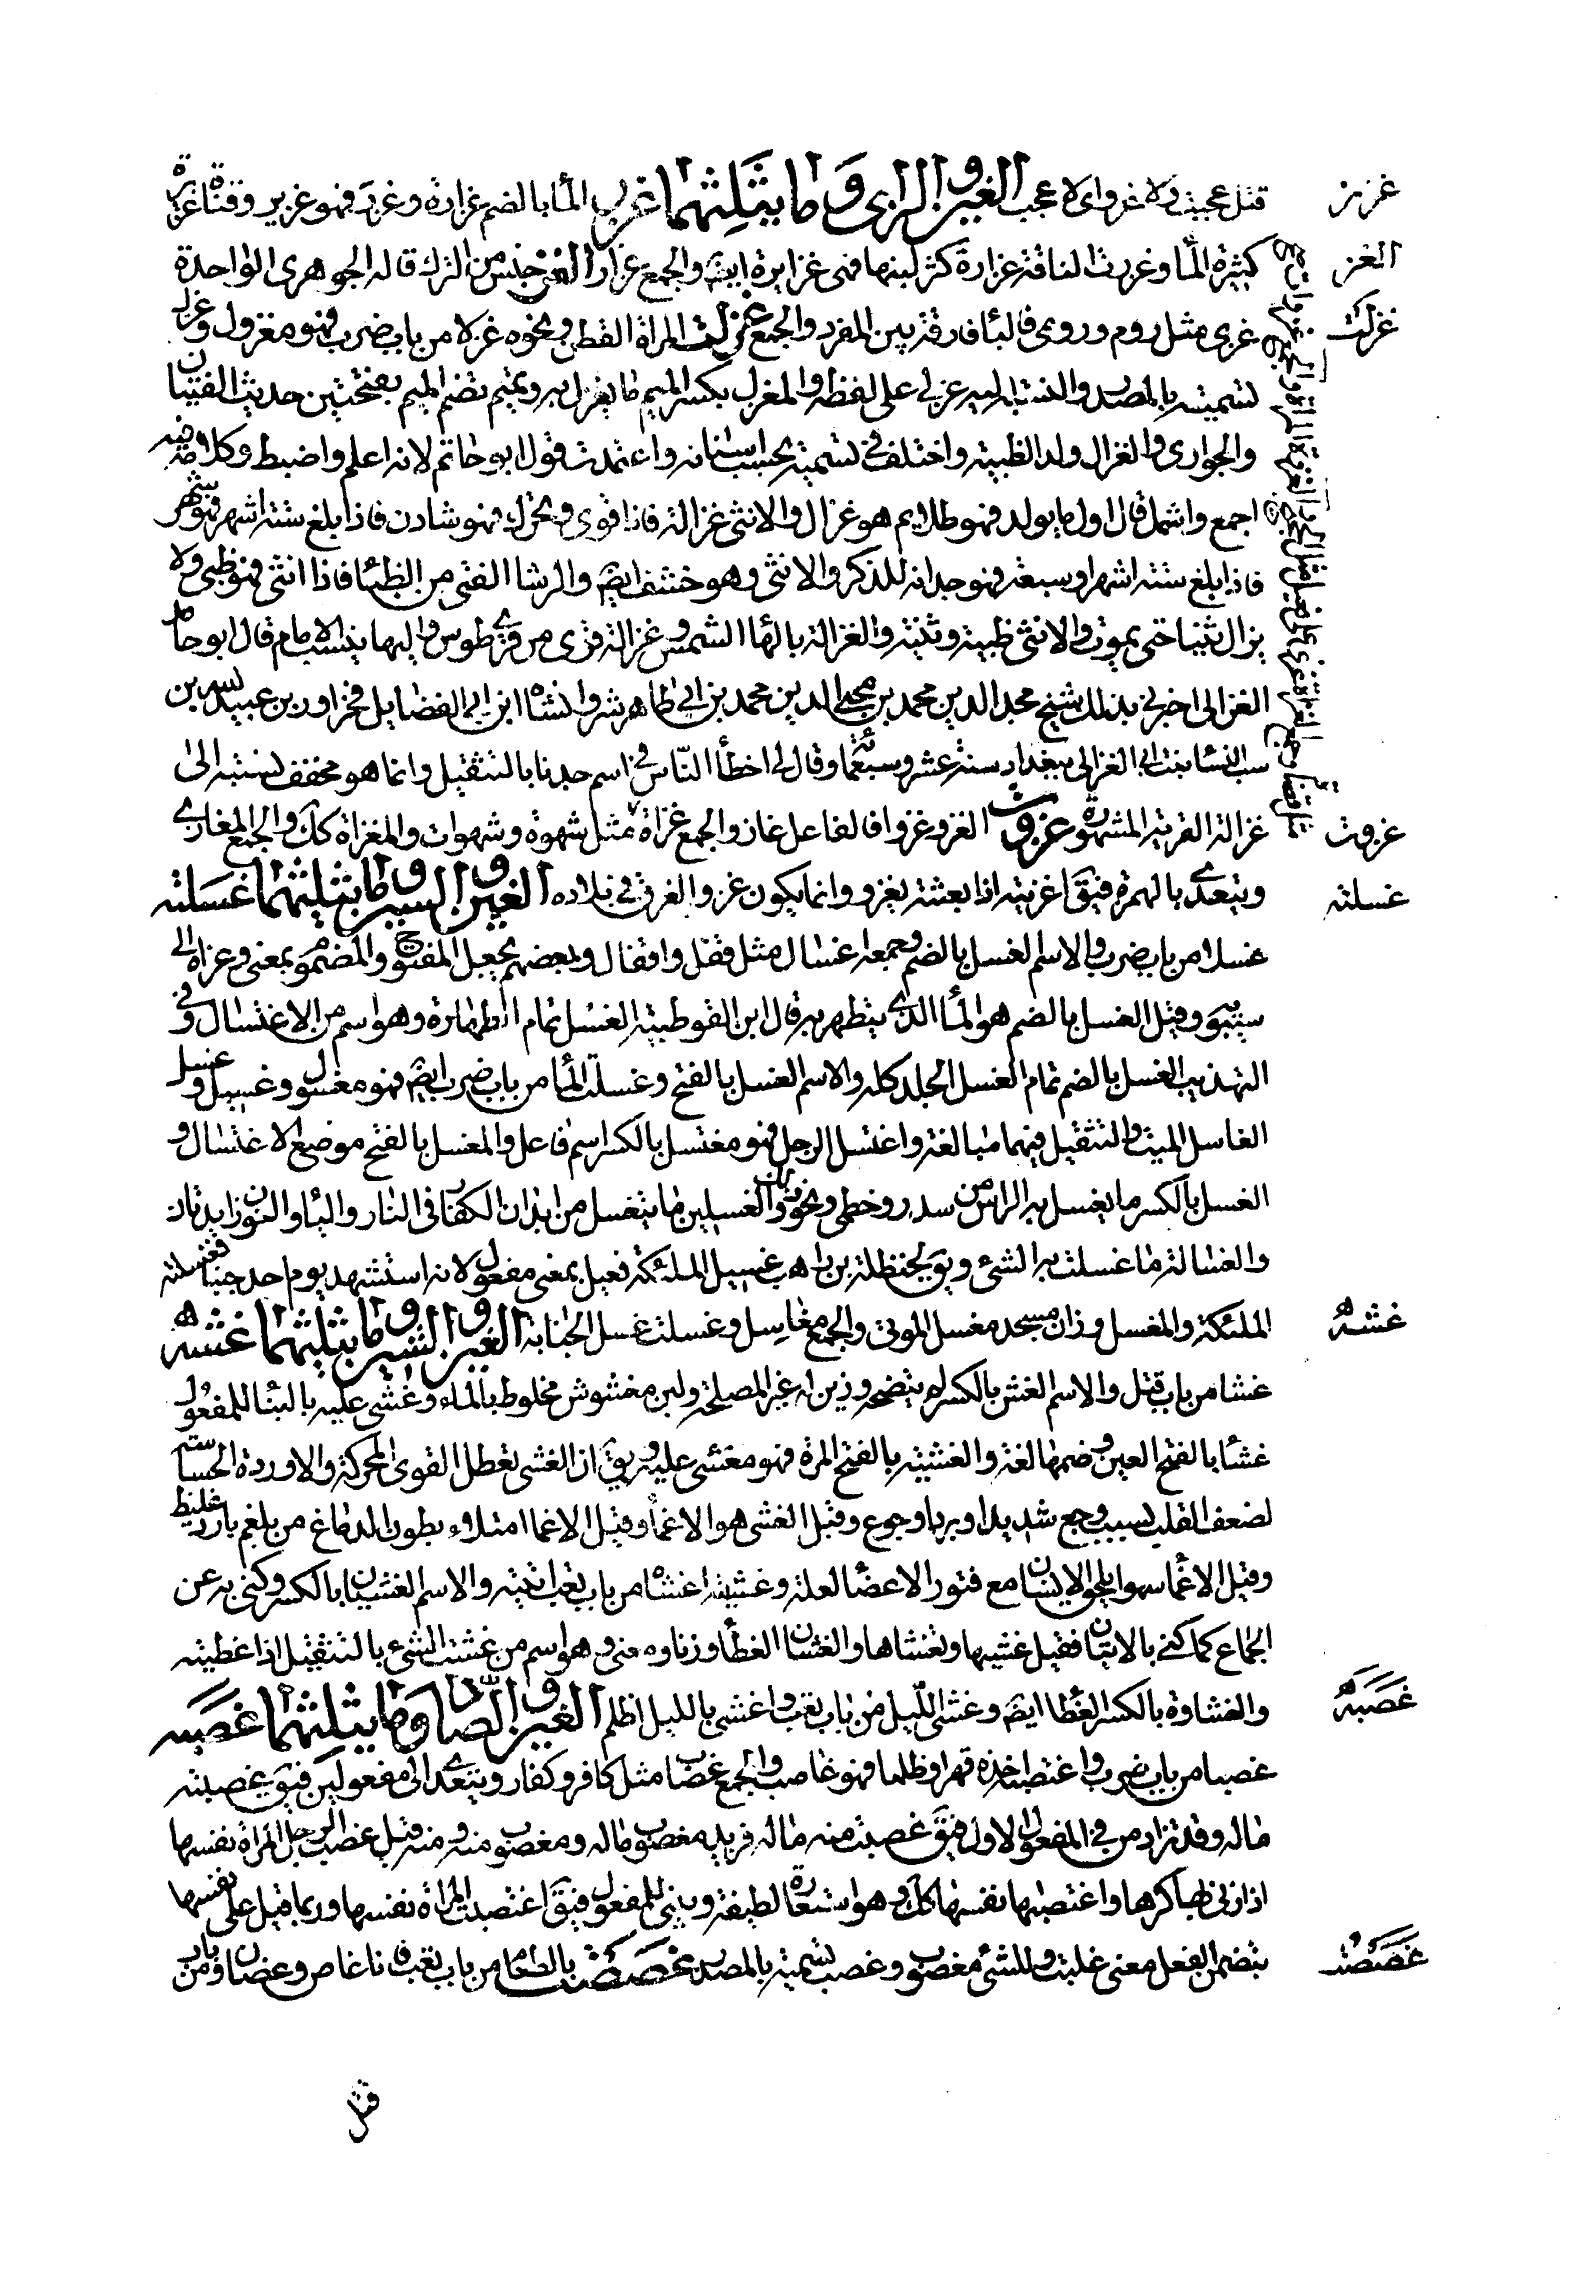 قتل عجب ولا غرو اى لا عجب الغين و الزاى و ما يثلثهما غزر الما بالضم غزارة وغزرا فهو غزير وقناة غزيرة
كثيرة الما وغزرت الناقة غزارة كثر لبنها فهى غزيرة ايضا والجمع غزار الغز جنس من الترك قاله الجوهرى الواحدة
غزى مثل روم ورومى فالياء فارقة بين المفرد والجمع غزلت المراة القطن ونحوه غزلا من باب ضرب فهو مغزول وغزل
تسمية بالمصدر والنسبة اليه غزلى على لفظه والمغزل بكسر الميم ما يغزل به وتميم تضم الميم بفتحتين حديث الفتيان
والجوارى والغزال ولد الظبية واختلف فى تسميته بحسب اسنانه واعتمدت قول ابو حاتم لانه اعلم واضبط وكلامه فيه
اجمع واشمل قال اول ما يولد فهو طلا ثم هو غزال والانثى غزالة فاذا قوى وتحرك فهو شادن فاذا بلغ ستة اشهر فهو شصر
فاذا بلغ ستة اشهر او سبعة فهو جداية للذكر والانثى وهو خشف ايضا والرشا الفتى من الظبا فاذا اثنى فهو ظبى ولا
يزال ثنيا حتى يموت والانثى ظبية وثنية والغزالة بالها الشمس وغزالة قرى من قرى طوس واليها ينسب الامام قال ابو حامد
الغزالى اخبرنى بذلك شيخ مجد الدين محمد بن محيى الدين محمد بن ابى طاهر شروانشاه ابن ابى الفضايل فخراور بن عبيد الله بن
ست النسا بنت ابى الغزالى ببغداد سنة عشر وسبعمائة وقال لى اخطأ الناس فى اسم جدنا بالتثقيل وانما هو مخفف نسبة الى
غزالة القرية المشهورة غزوت الغزو غزوا فالفاعل غاز والجمع غزاة مثل شهوة وشهوات والمغزاة كك والجمع المغازى
ويتعدى بالهمزة فيق اغزيته اذا بعثته يغزو وانما يكون غزو الغزى فى بلاده الغين و السين و ما يثلثهما غسلته
غسلا من باب ضرب والاسم الغسل بالضم وجمعه غسال مثل قفل واقفال وبعضهم يجعل المفتوح والمضموم بمعنى وعزاه الى
سيبويه وقيل الغسل بالضم هو الما الذى يتطهر به قال ابن القوطية الغسل تمام الطهارة وهو اسم من الاغتسال وفى
التهذيب الغسل بالضم تمام الغسل الجلد كله والاسم الغسل بالفتح وغسلت الما من باب ضرب ايضا فهو مغسول وغسيل وغسل
الغاسل الميت والتثقيل فيهما مبالغة واغتسل الرجل فهو مغتسل بالكسر اسم فاعل والمغسل بالفتح موضع الاغتسال و
الغسل بالكسر ما يغسل به الراس من سدر وخطمى ونحو ذلك والغسلين ما ينغسل من ابدان الكفار فى النار واليا والنون زايدتان
والغسالة ما غسلت به الشئ ويق لحنظلة بن راهب غسيل الملئكة فعيل بمعنى مفعول لانه استشهد يوم احد جنبا فغسلته
الملئكة والمغسل وزان مسجد مغسل الموتى والجمع مغاسل وغسلت غسل الجنابة الغين و الشين و ما يثلثهما غشه
غشا من باب قتل والاسم الغش بالكسر لم ينصحه وزين له غير المصلحة ولبن مغشوش مخلوط بالماء وغشى عليه بالبنا للمفعول
غشيا بالفتح العين وضمها لغة والغشية بالفتح المرة فهو مغشى عليه ويق ان الغشى تعطل القوى المحركة والاوردة الحساسة
لضعف القلب بسبب وجع شديد او برد او جوع وقيل الغشى هو الاغما وقيل الاغما امتلاء بطون الدماغ من بلغم بارد غليظ
وقيل الاغما سهو يلحق الانسان مع فتور الاعضا لعلة وغشيته اغشاه من باب تعب اتيته والاسم الغشيان بالكسر وكنى به عن
الجماع كما كنى بالاتيان فقيل غشيها وتغشاها والغشاء الغطا وزنا ومعنى وهو اسم من غشيت الشئ بالتثقيل اذا غطيته
والغشاوة بالكسر الغطا ايضا وغشى الليل من باب تعب واغشى بالليل اظلم الغين و الصاد و ما يثلثهما غصبه
غصبا من باب ضرب واغتصبه اخذه قهرا وظلما فهو غاصب والجمع غصاب مثل كافر وكفار ويتعدى الى مفعولين فيق غصبته
ماله وقد تزاد من فى المفعول الاول فيق غصبت منه ماله فزيد مغصوب ماله ومغصوب منه ومنه قيل غصب الرجل المراة نفسها
اذا زنى بها كرها واغتصبها نفسها كك وهو استعارة لطيفة ويبنى للمفعول فيق اغتصبت المراة نفسها وربما قيل على نفسها
بتضمن الفعل معنى غلبت والشئ مغصوب وغصب تسمية بالمصدر غصصت بالطعام من باب تعب فانا غاص وغصان ومن باب
قتل
غزز
الغز
غزلت
غزوت
غسلته
غشه
غصبه
غصصت